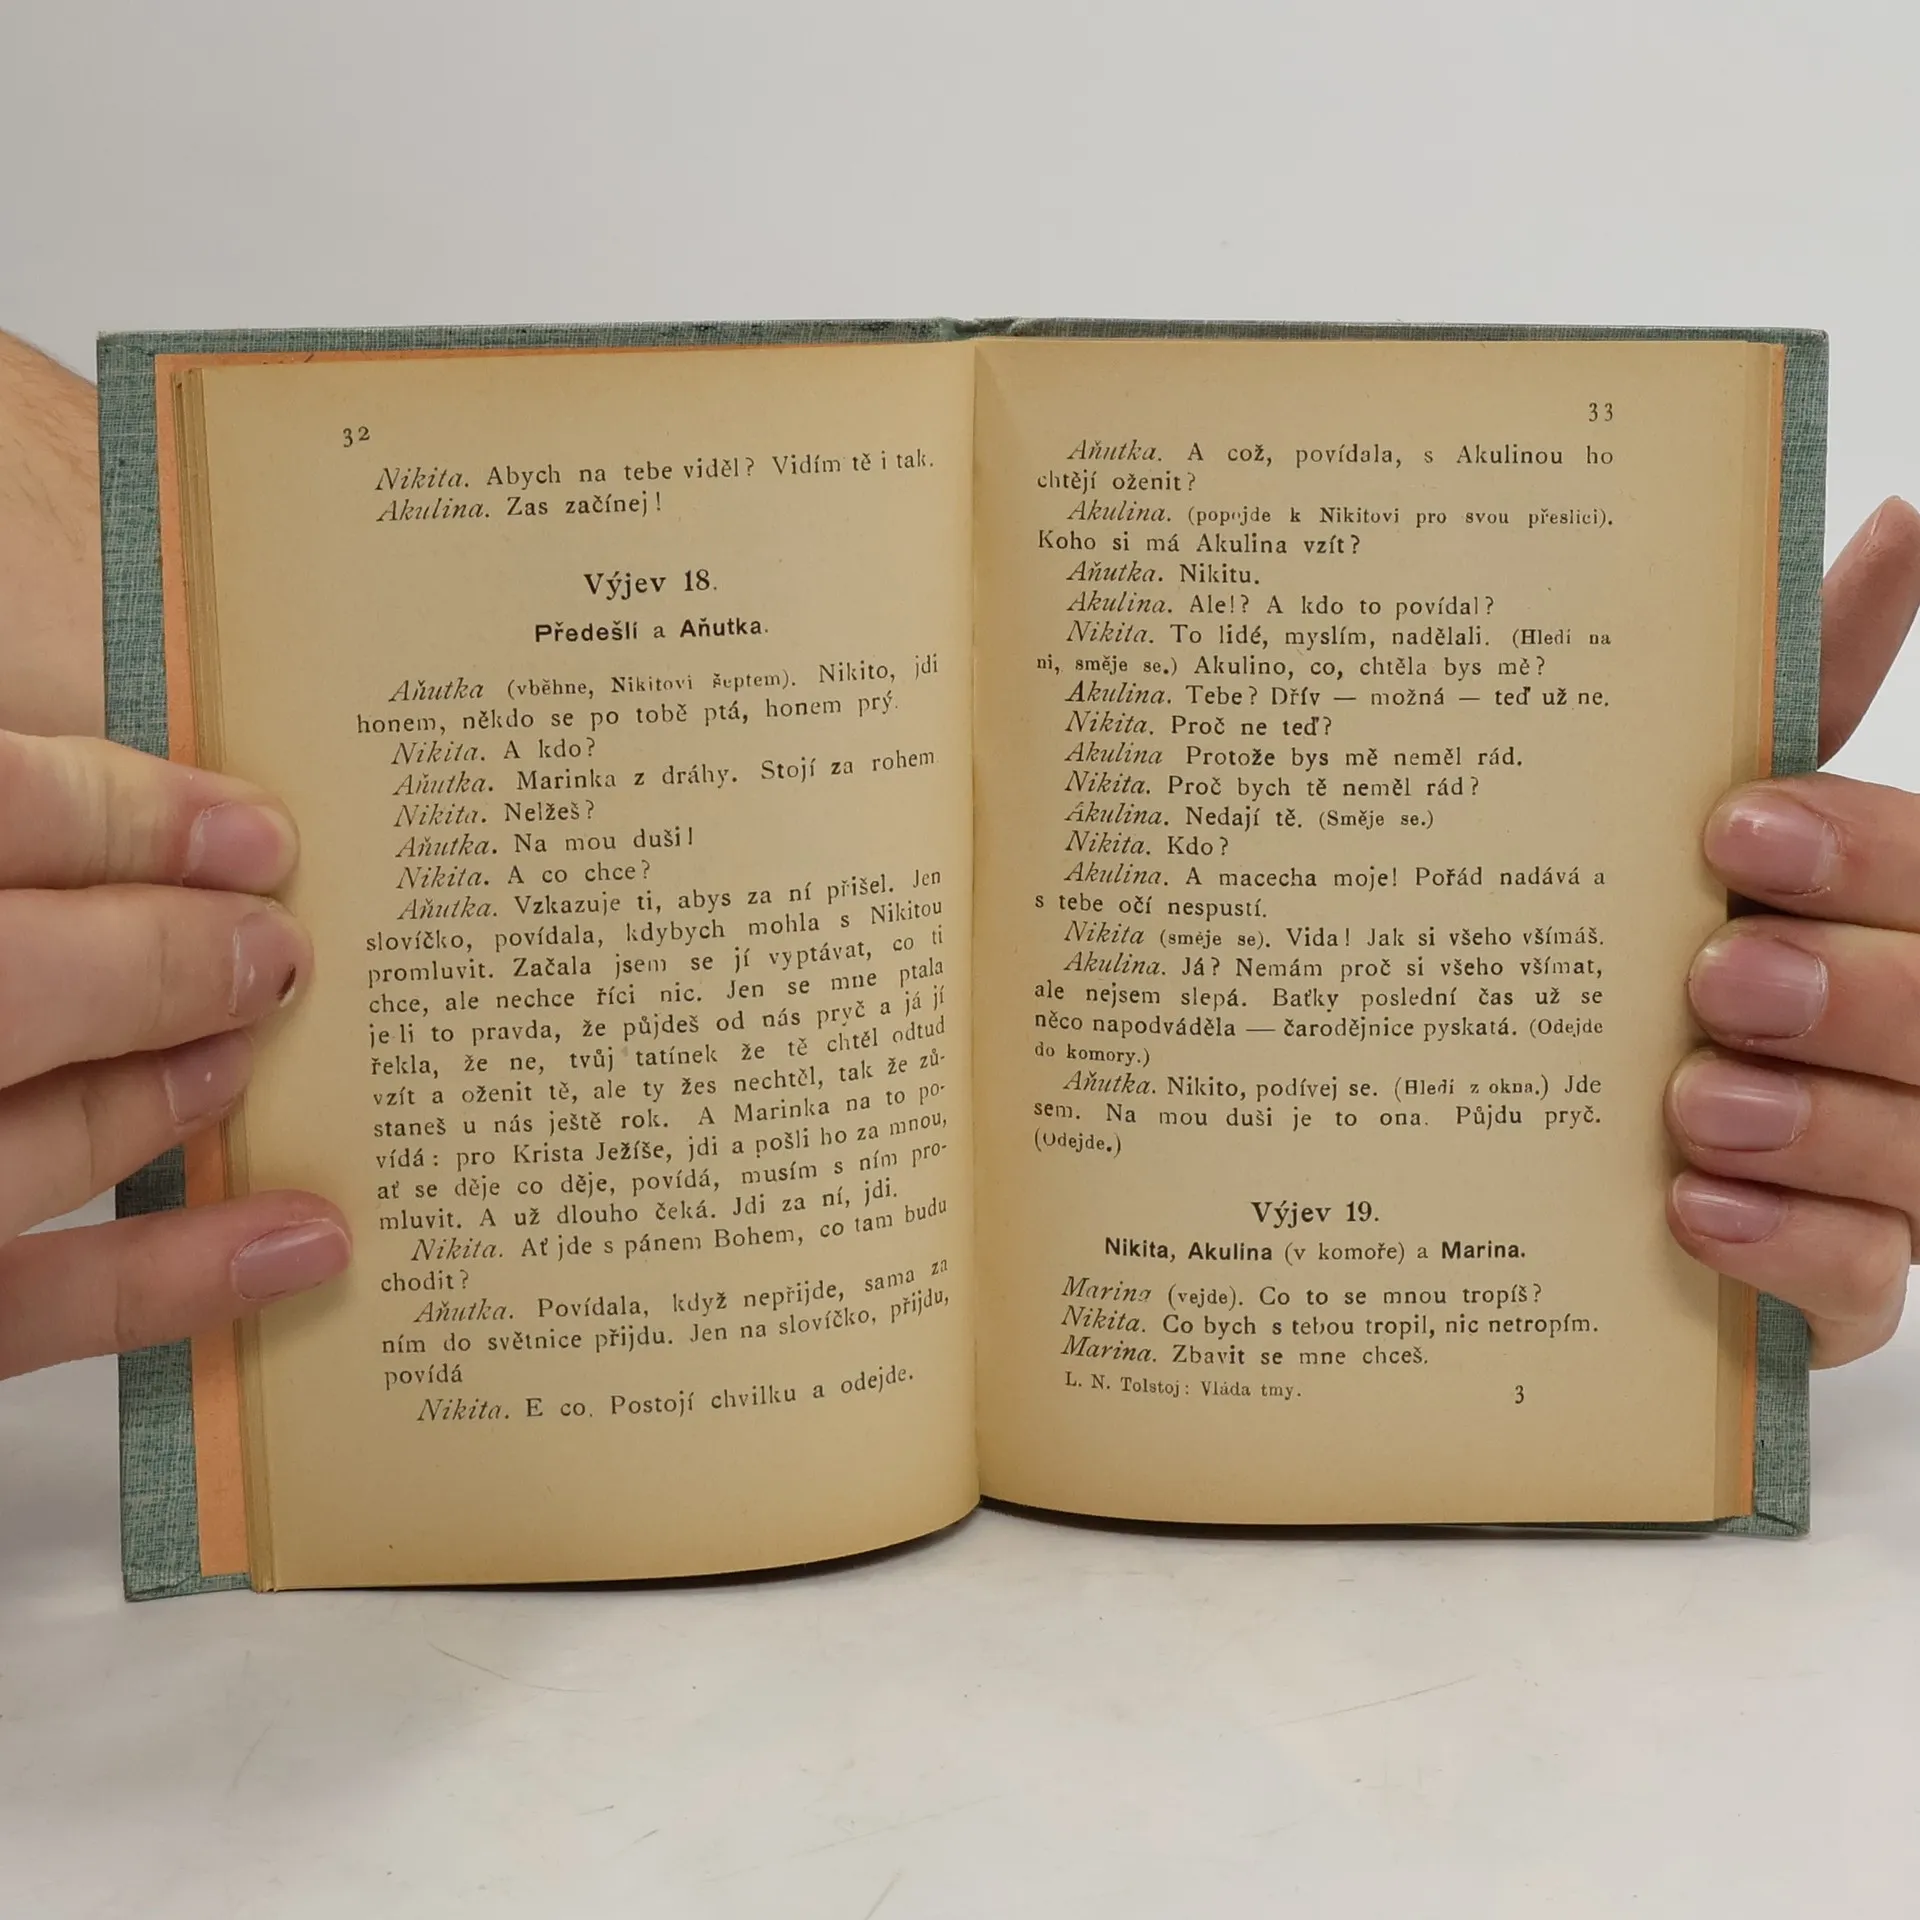 32
Nikita. Abych na tebe viděl? Vidím tě i tak.
Akulina. Zas začínej!
Výjev 18.
Předešlí a Aňutka.
Aňutka (vběhne, Nikitovi šeptem). Nikito, jdi
honem, někdo se po tobě ptá, honem prý.
Nikita. A kdo?
Aňutka. Marinka z dráhy. Stojí za rohem
Nikita. Nelžeš?
Aňutka. Na mou duši!
Nikita. A co chce?
Aňutka. Vzkazuje ti, abys za ní přišel. Jen
slovíčko, povídala, kdybych mohla s Nikitou
promluvit. Začala jsem se jí vyptávat, co ti
chce, ale nechce říci nic. Jen se mne ptala
je-li to pravda, že půjdeš od nás pryč a já jí
řekla, že ne, tvůj tatínek že tě chtěl odtud
vzít a oženit tě, ale ty žes nechtěl, tak že zů-
staneš u nás ještě rok. A Marinka na to po-
vídá: pro Krista Ježíše, jdi a pošli ho za mnou,
ať se děje co děje, povídá, musím s ním pro-
mluvit. A už dlouho čeká. Jdi za ní, jdi.
Nikita. Ať jde s pánem Bohem, co tam budu
chodit?
Aňutka. Povídala, když nepřijde, sama za
ním do světnice přijdu. Jen na slovíčko, přijdu,
povídá
Nikita. E co. Postojí chvilku a odejde.
33
Aňutka. A což, povídala, s Akulinou ho
chtějí oženit?
Akulina. (popojde k Nikitovi pro svou přeslici).
Koho si má Akulina vzít?
Aňutka. Nikitu.
Akulina. Ale!? A kdo to povídal?
Nikita. To lidé, myslím, nadělali. (Hledí na
ni, směje se.) Akulino, co, chtěla bys mě?
Akulina. Tebe? Dřív — možná — teď už ne.
Nikita. Proč ne teď?
Akulina Protože bys mě neměl rád.
Nikita. Proč bych tě neměl rád?
Akulina. Nedají tě. (Směje se.)
Nikita. Kdo?
Akulina. A macecha moje! Pořád nadává a
s tebe očí nespustí.
Nikita (směje se). Vida! Jak si všeho všímáš.
Akulina. Já? Nemám proč si všeho všímat,
ale nejsem slepá. Baťky poslední čas už se
něco napodváděla — čarodějnice pyskatá. (Odejde
do komory.)
Aňutka. Nikito, podívej se. (Hledí z okna.) Jde
sem. Na mou duši je to ona. Půjdu pryč.
(Odejde.)
Výjev 19.
Nikita, Akulina (v komoře) a Marina.
Marina (vejde). Co to se mnou tropíš?
Nikita. Co bych s tebou tropil, nic netropím.
Marina. Zbavit se mne chceš.
L. N. Tolstoj: Vláda tmy. 3